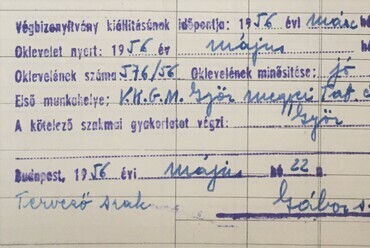 Végbizonyítvány kiállításának időpontja: 1956 évi márc
Oklevelet nyert: 1956 év május
Oklevelének száma 576/56 Oklevelének minősítése: jó
Első munkahelye: K.H.G.M. Győr megyei Tat.
A kötelező szakmai gyakorlatot végzi: Győr
Budapest, 1956 évi május hó 22 n.
Tervező szak Gábor